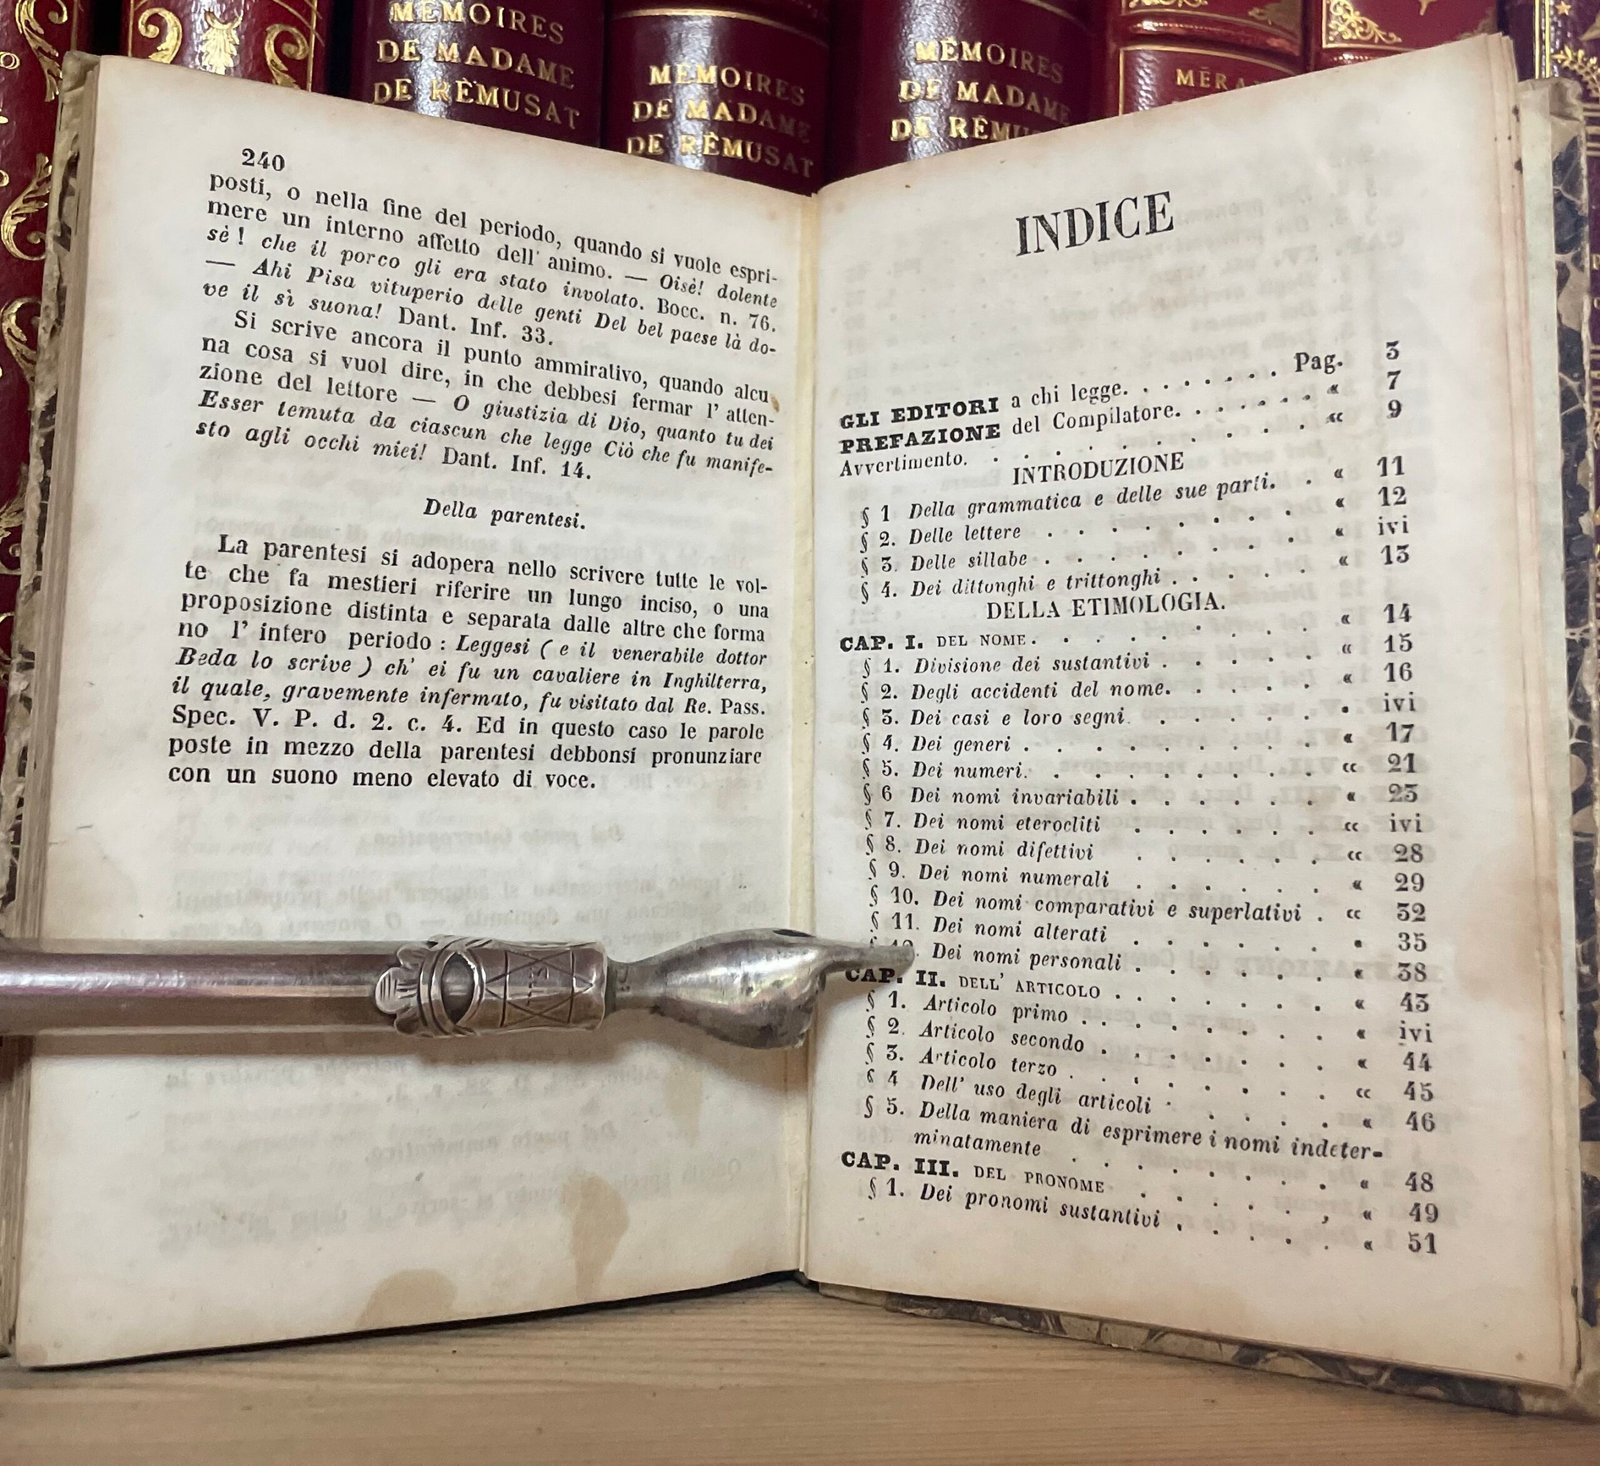 MÉMOIRES
DE MADAME
DE RÉMUSAT
MÉMOIRES
DE MADAME
DE RÉMUSAT
MÉMOIRES
DE MADAME
DE RÉMU
MÉRA
240
posti, o nella fine del periodo, quando si vuole espri-
mere un interno affetto dell' animo. — Oisè! dolente
sè! che il porco gli era stato involato. Bocc. n. 76.
— Ahi Pisa vituperio delle genti Del bel paese là do-
ve il sì suona! Dant. Inf. 33.
Si scrive ancora il punto ammirativo, quando alcu
na cosa si vuol dire, in che debbesi fermar l' atten-
zione del lettore — O giustizia di Dio, quanto tu dei
Esser temuta da ciascun che legge Ciò che fu manife-
sto agli occhi miei! Dant. Inf. 14.
Della parentesi.
La parentesi si adopera nello scrivere tutte le vol-
te che fa mestieri riferire un lungo inciso, o una
proposizione distinta e separata dalle altre che forma
no l' intero periodo : Leggesi ( e il venerabile dottor
Beda lo scrive ) ch' ei fu un cavaliere in Inghilterra,
il quale, gravemente infermato, fu visitato dal Re. Pass.
Spec. V. P. d. 2. c. 4. Ed in questo caso le parole
poste in mezzo della parentesi debbonsi pronunziare
con un suono meno elevato di voce.
INDICE
GLI EDITORI a chi legge. . . . . . . . Pag. 3
PREFAZIONE del Compilatore. . . . . . . « 7
Avvertimento. . . . . . . . . « 9
INTRODUZIONE
§ 1 Della grammatica e delle sue parti. . « 11
§ 2. Delle lettere . . . . . . . « 12
§ 3. Delle sillabe . . . . . . . « ivi
§ 4. Dei dittonghi e trittonghi . . . . . « 13
DELLA ETIMOLOGIA.
CAP. I. DEL NOME. . . . . . . . « 14
§ 1. Divisione dei sustantivi . . . . . « 15
§ 2. Degli accidenti del nome. . . . . « 16
§ 3. Dei casi e loro segni . . . . . . ivi
§ 4. Dei generi . . . . . . . . « 17
§ 5. Dei numeri. . . . . . . . « 21
§ 6 Dei nomi invariabili . . . . . . « 23
§ 7. Dei nomi eterocliti . . . . . . « ivi
§ 8. Dei nomi difettivi . . . . . . « 28
§ 9. Dei nomi numerali . . . . . . « 29
§ 10. Dei nomi comparativi e superlativi . « 32
§ 11. Dei nomi alterati . . . . . . 35
Dei nomi personali . . . . . . « 38
CAP. II. DELL' ARTICOLO . . . . . . « 43
§ 1. Articolo primo . . . . . . . « ivi
§ 2. Articolo secondo . . . . . . « 44
§ 3. Articolo terzo . . . . . . . « 45
§ 4 Dell' uso degli articoli . . . . . « 46
§ 5. Della maniera di esprimere i nomi indeter-
minatamente . . . . . . . « 48
CAP. III. DEL PRONOME . . . . . . « 49
§ 1. Dei pronomi sustantivi . . . . . « 51